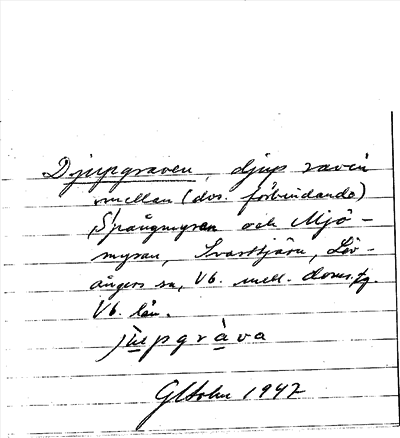 Djupgraven, djup ravin
mellan (dvs. förbindande)
Spångmyran och Mjö-
myran, Svarttjärn, Löv-
ångers sn, Vb. mell. doms.
Vb. län.
jùpgràva
1947